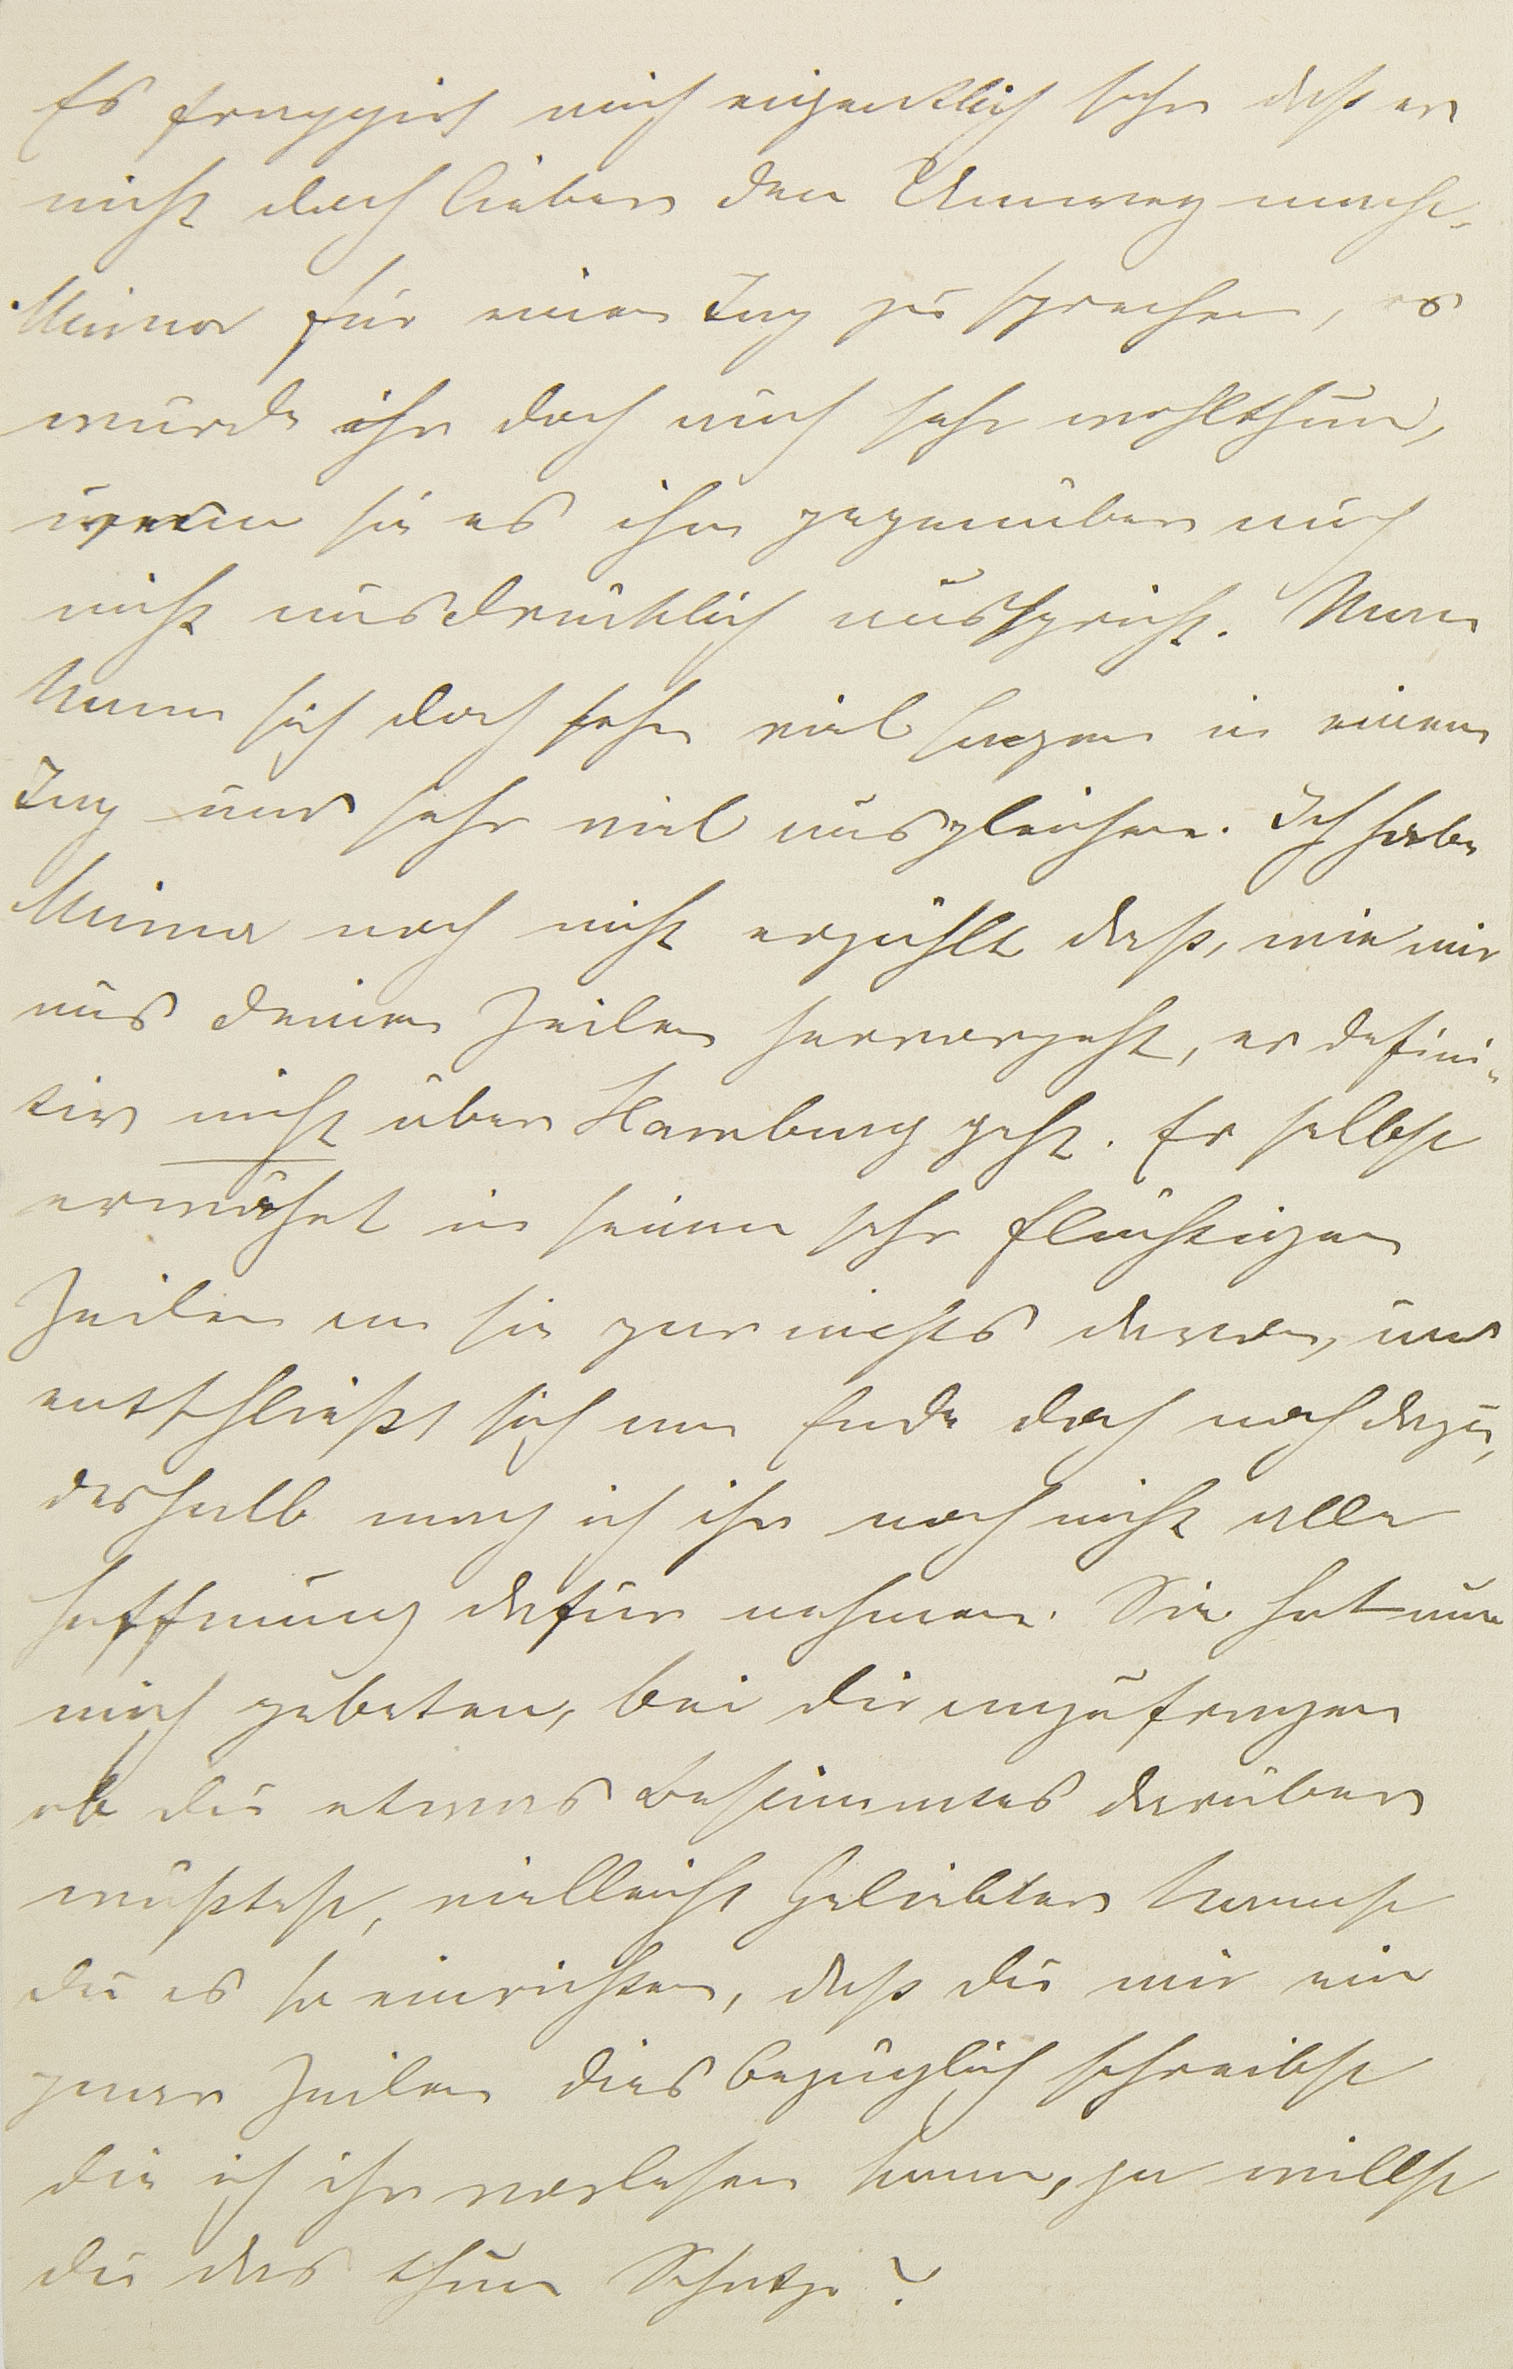 Es frappirt mich eigentlich sehr daß er
nicht doch lieber den Umweg macht
Minna für einen Tag zu sprechen, es
würde ihr doch auch sehr wohlthun,
wenn sie es ihm gegenüber auch
nicht ausdrücklich ausspricht. Man
kann sich doch sehr viel sagen in einem
Tag und sehr viel ausgleichen. Ich habe
Minna noch nicht erzählt daß, wie mir
aus deinen Zeilen hervorgeht, er defini-
tiv nicht über Hamburg geht. Er selbst
erwähnt in seinen sehr flüchtigen
Zeilen an sie gar nichts davon, und
entschließt sich am Ende doch noch dazu,
deshalb mag ich ihr noch nicht alle
Hoffnung dafür nehmen. Sie hat nun
mich gebeten, bei dir anzufragen
ob du etwas Bestimmtes darüber
wüßtest, vielleicht Geliebter kannst
du es so einrichten, daß du mir ein
paar Zeilen diesbezüglich schreibst
die ich ihr vorlesen kann, ja willst
du das thun Schatz?